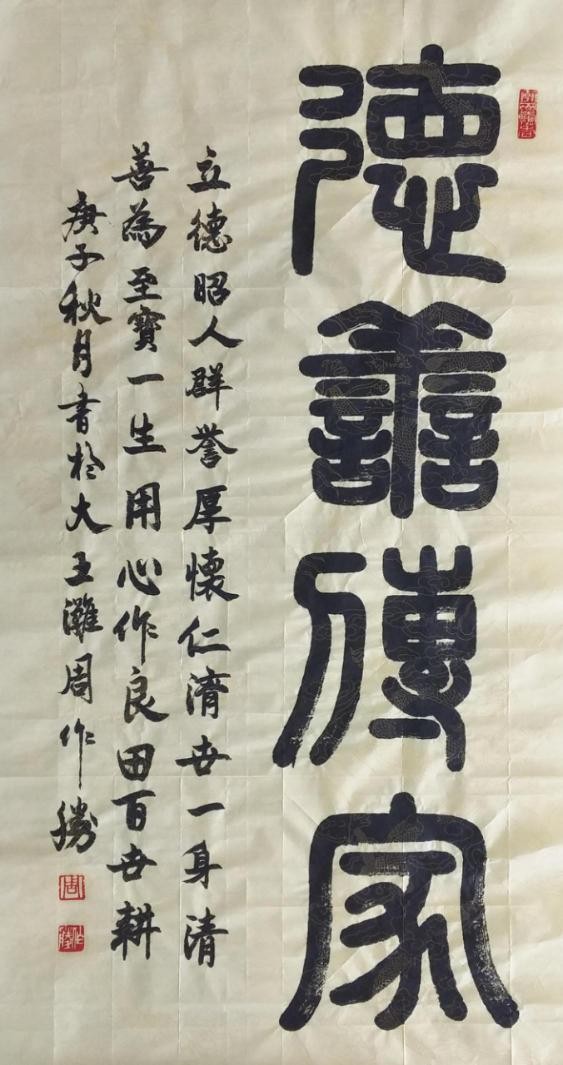 德善傳家
立德昭人群誉厚懷仁濟世一身清
善為至寶一生用心作良田百世耕
庚子秋月書於大王灘周作勝
周
作勝